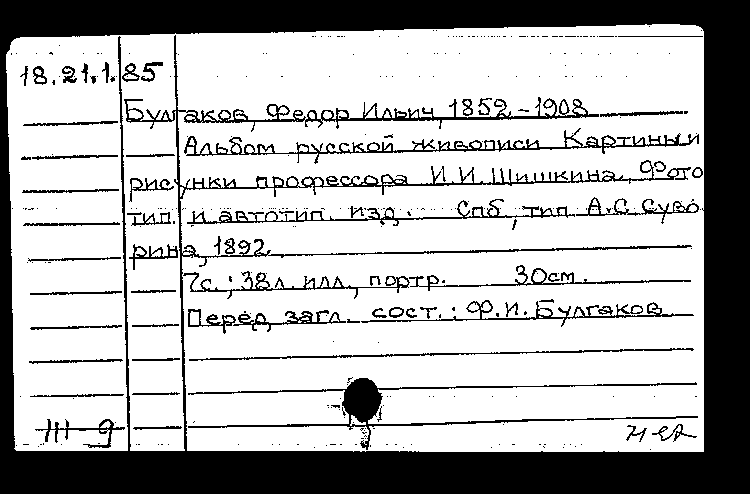 18.21.1.85
Булгаков, Федор Ильич, 1852-1908
Альбом русской живописи Картины и
рисунки профессора И.И. Шишкина, Фото
тип. и автотип. изд. Спб, тип А.С. Суво
рина, 1892.
7с.; 38л. илл., портр. 30см.
Перед загл. сост.: Ф.И. Булгаков
III-9